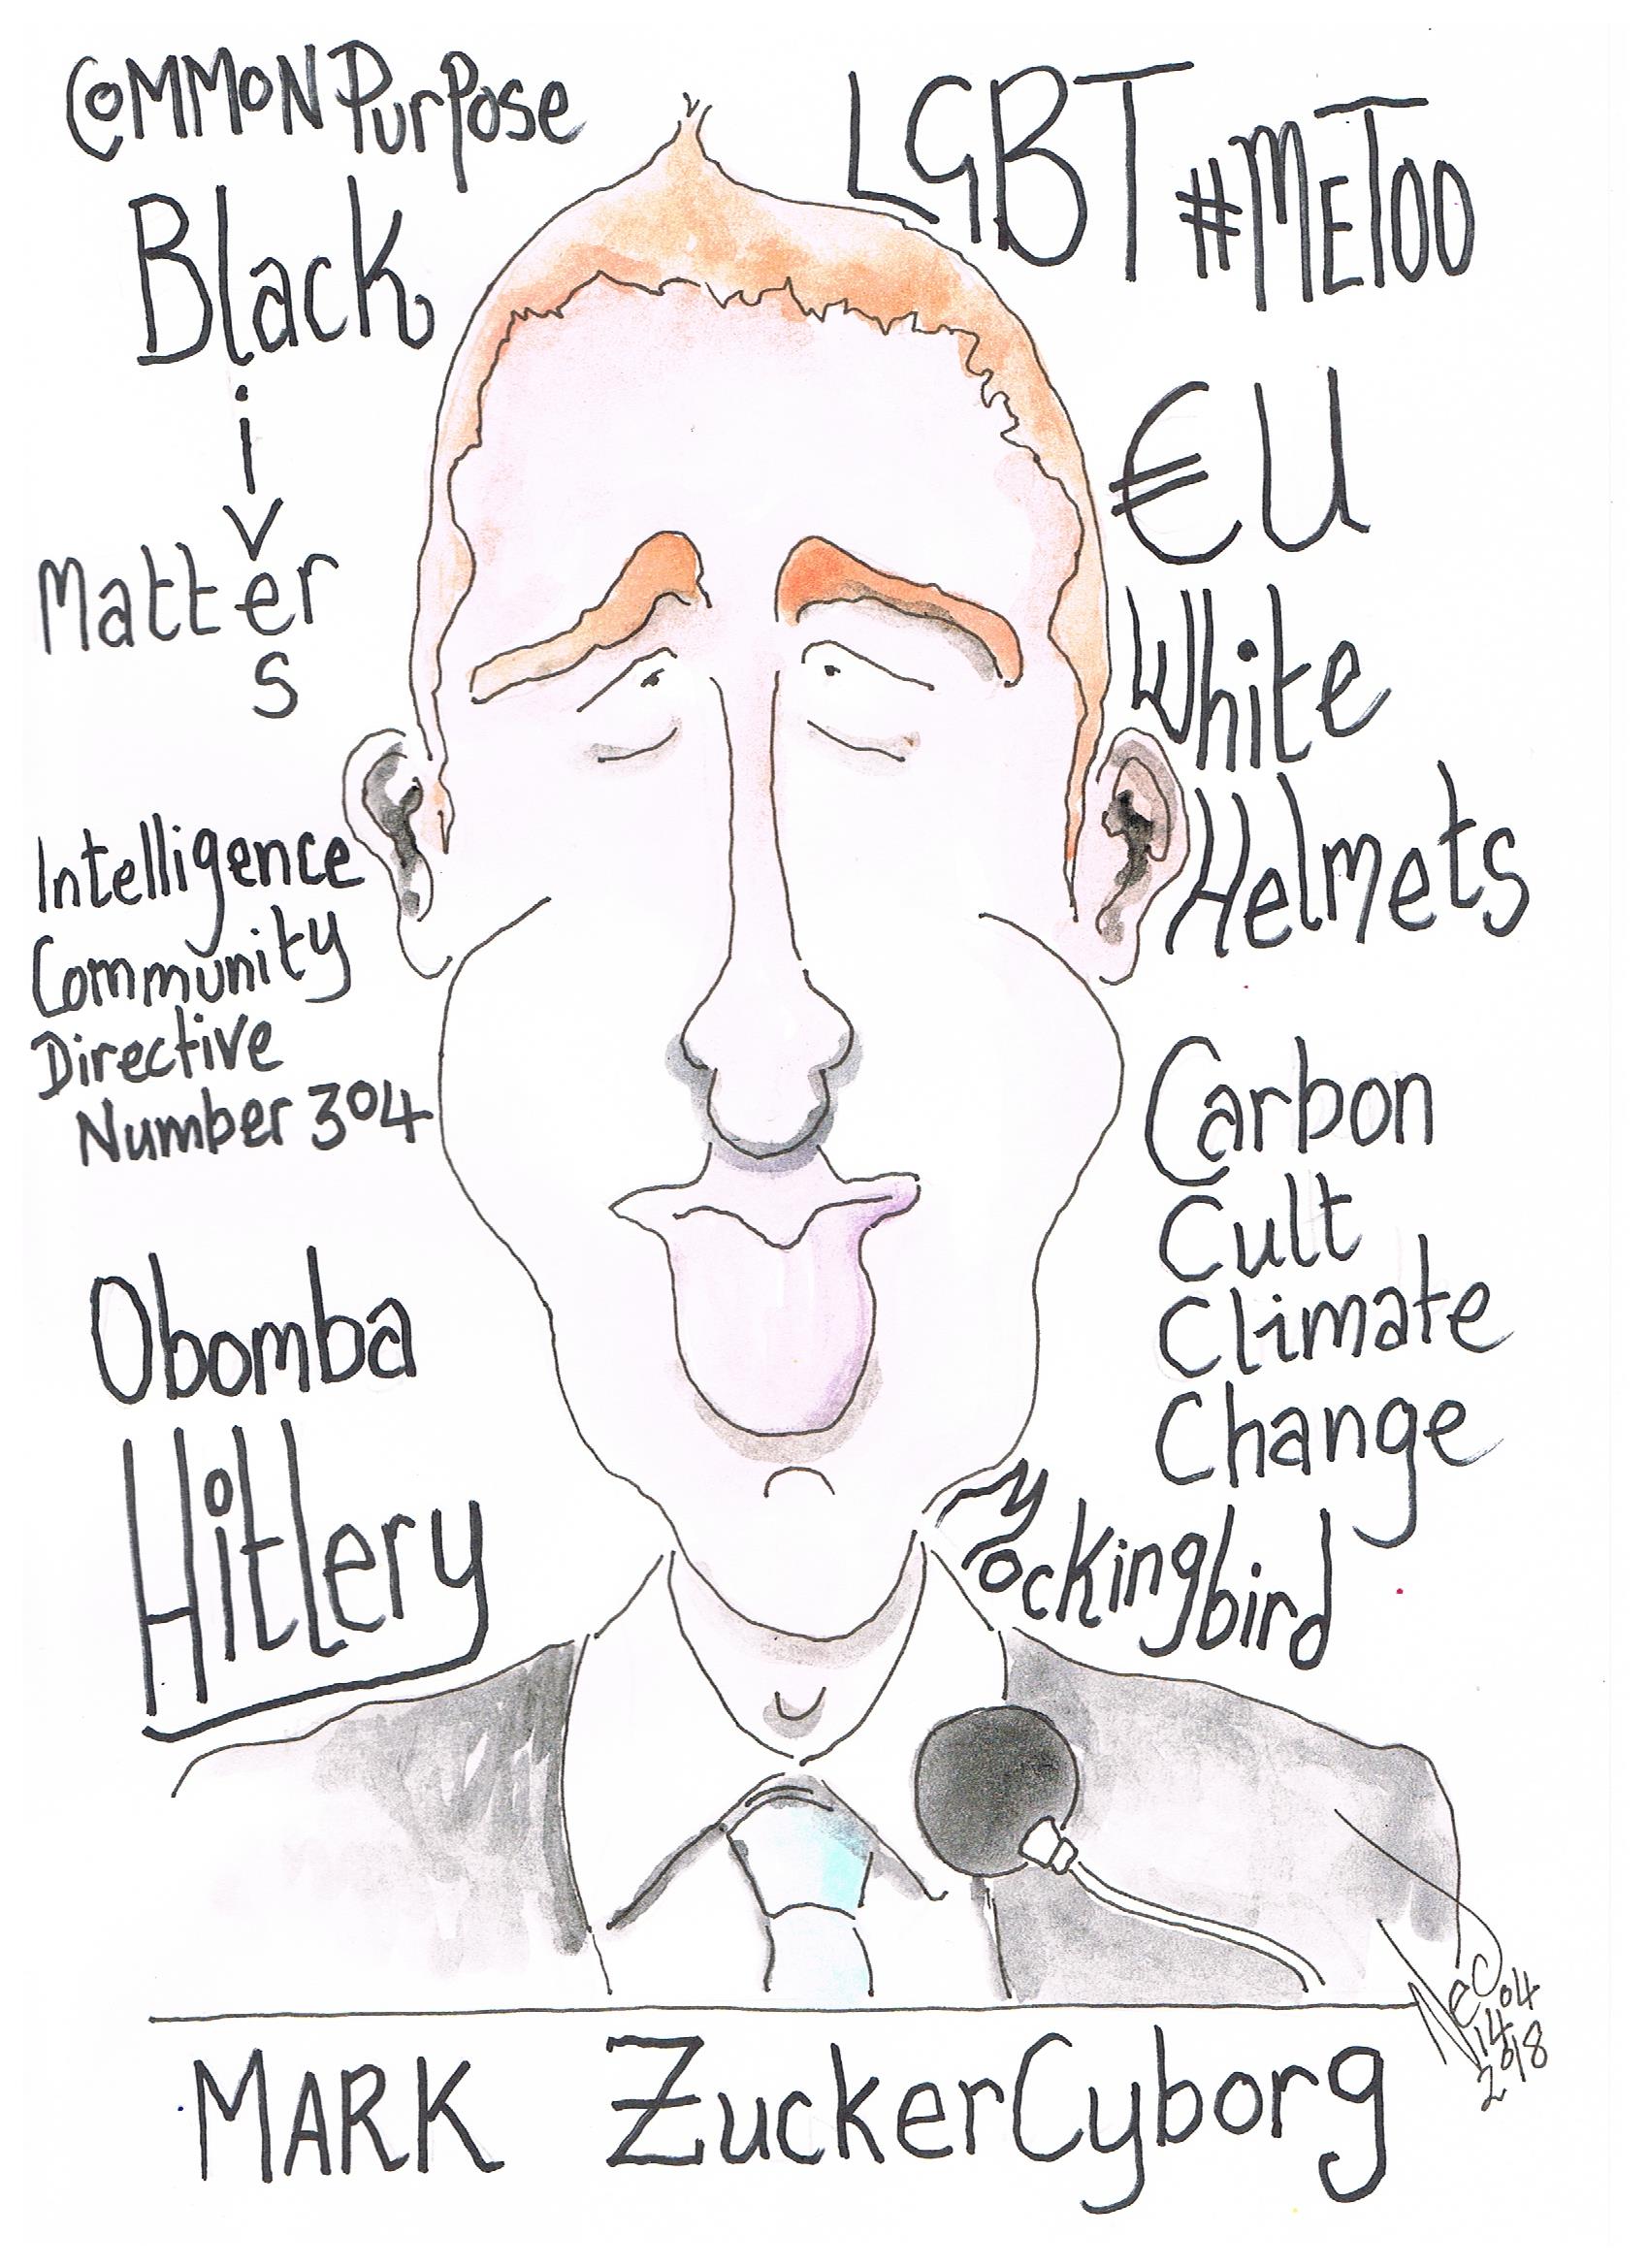 CoMMoN PurPose
Black
Lives
Matters
Intelligence
Community
Directive
Number 304
Obomba
Hitlery
LGBT
#METOO
€U
White
Helmets
Carbon
Cult
Climate
Change
Mockingbird
04
14
2018
MARK ZuckerCyborg